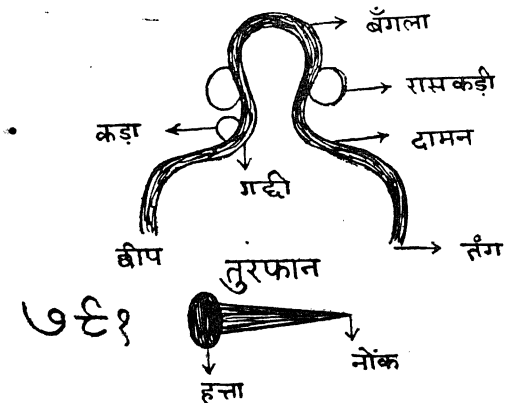 बँगला
रासकड़ी
कड़ा
दामन
गद्दी
छीप
तंग
तुरफान
७९१
नोंक
हत्ता